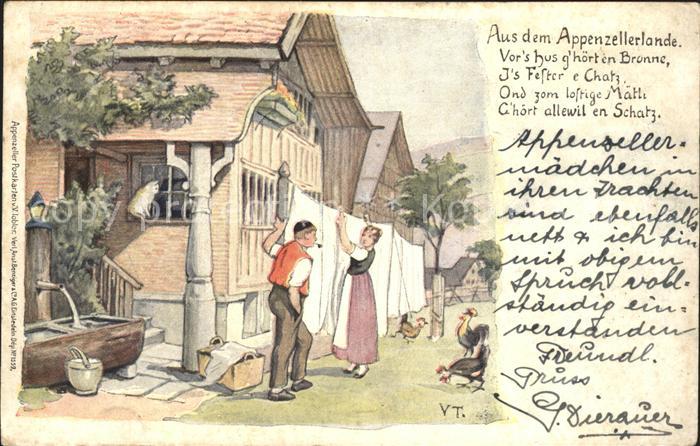 Aus dem Appenzellerlande.
Vor's Hus g'hört en Bronne,
I's Feſter e Chatz,
Ond zom loſtige Mätli
G'hört allewil en Schatz.
Appenzeller-
mädchen in
ihren Trachten
sind ebenfalls
nett & ich bin
mit obigem
Spruch voll-
ständig ein-
verstanden
Freundl.
Gruss
J. Dierauer
Appenzeller Postkarten v. V. Tobler. Verl. Anst. Benziger & Co. A.G. Einsiedeln Dép.
VT.
copy